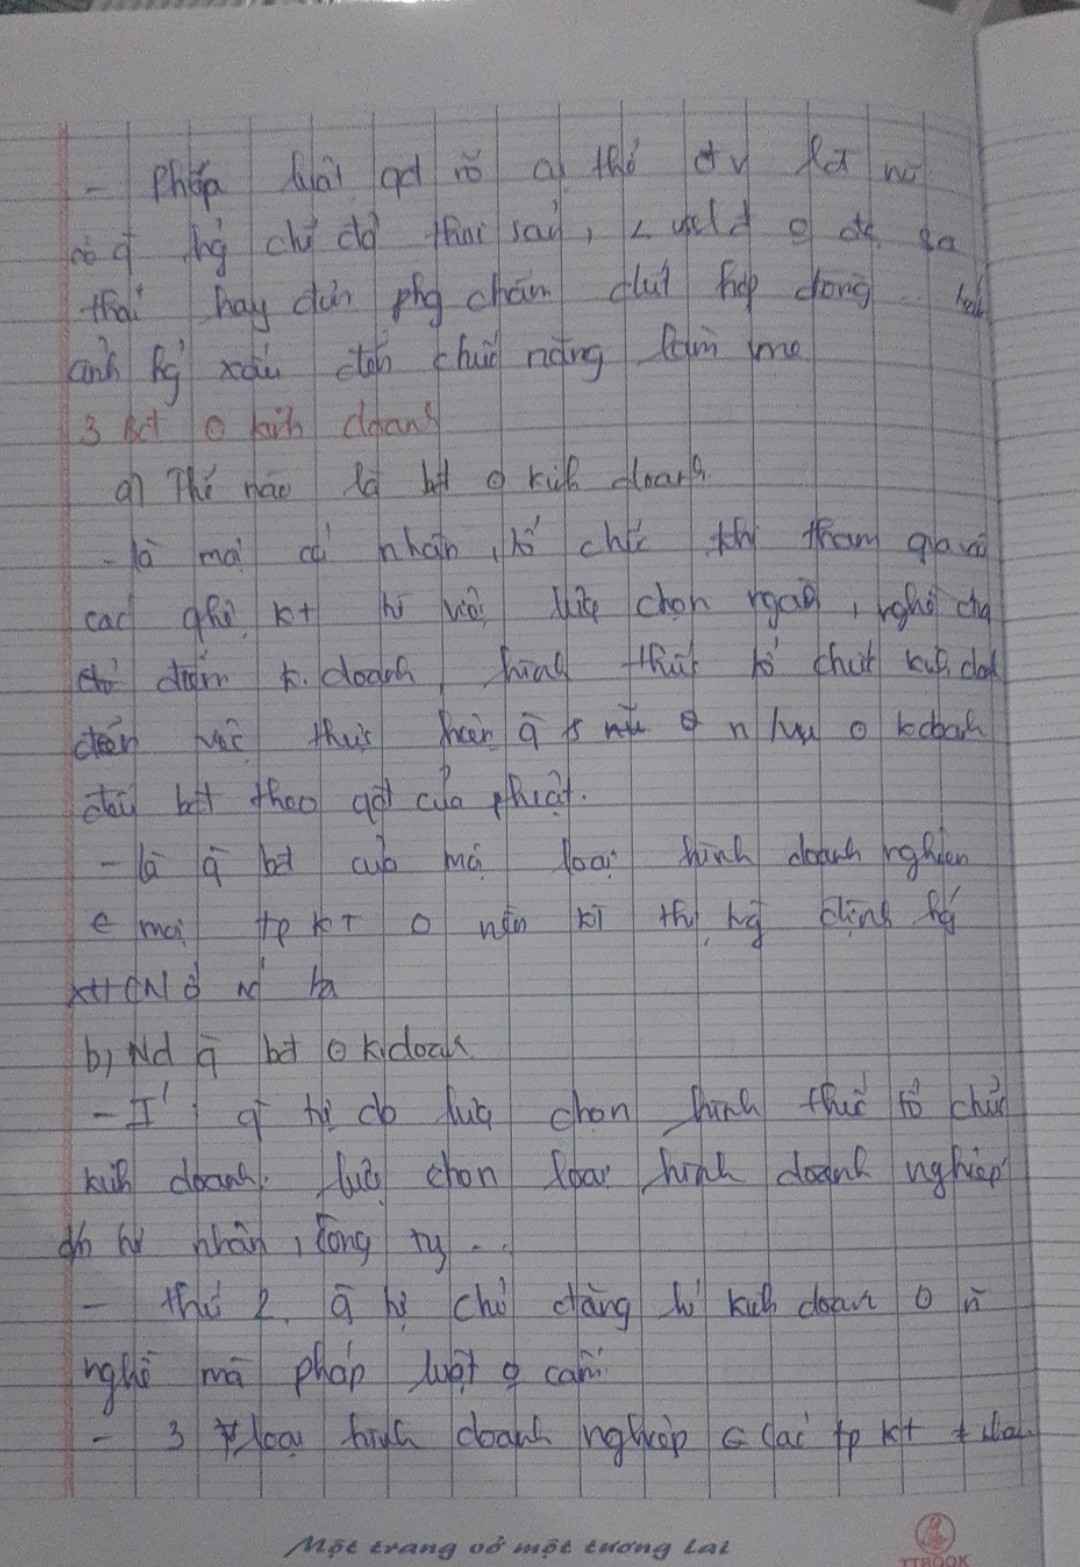 - Pháp luật qđ rõ cụ thể đv lđ nữ
có q hg chế độ thai sản, k
thai hay đơn phg chấm dứt hợp đồng ...
ảnh hg xấu đến chức năng làm mẹ
3 Bđ o kinh doanh
a) Thế nào là bđ o kinh doanh
- là mọi cá nhân, tổ chức khi tham gia vào
các qhệ kt từ việc lựa chọn ngành, nghề, địa
điểm k.doanh, hình thức tổ chức
đến việc thực hiện o kdoanh
đều bđ theo qđ của pluật.
- là q bđ của mọi loại hình doanh nghiệp
mọi tp KT o nền kT thị hg định hg
XHCN ở nc ta
b) Nd q bđ o kdoanh
- I q tự do lựa chọn hình thức tổ chức
kinh doanh. lựa chọn loại hình doanh nghiệp
dn tư nhân, công ty ...
- thứ 2. q tự chủ đăng kí kinh doanh o n
nghề mà pháp luật o cấm
- 3 loại hình doanh nghiệp các tp kt ≠ nhau
Một trang vở một tương lai
TTBOOK